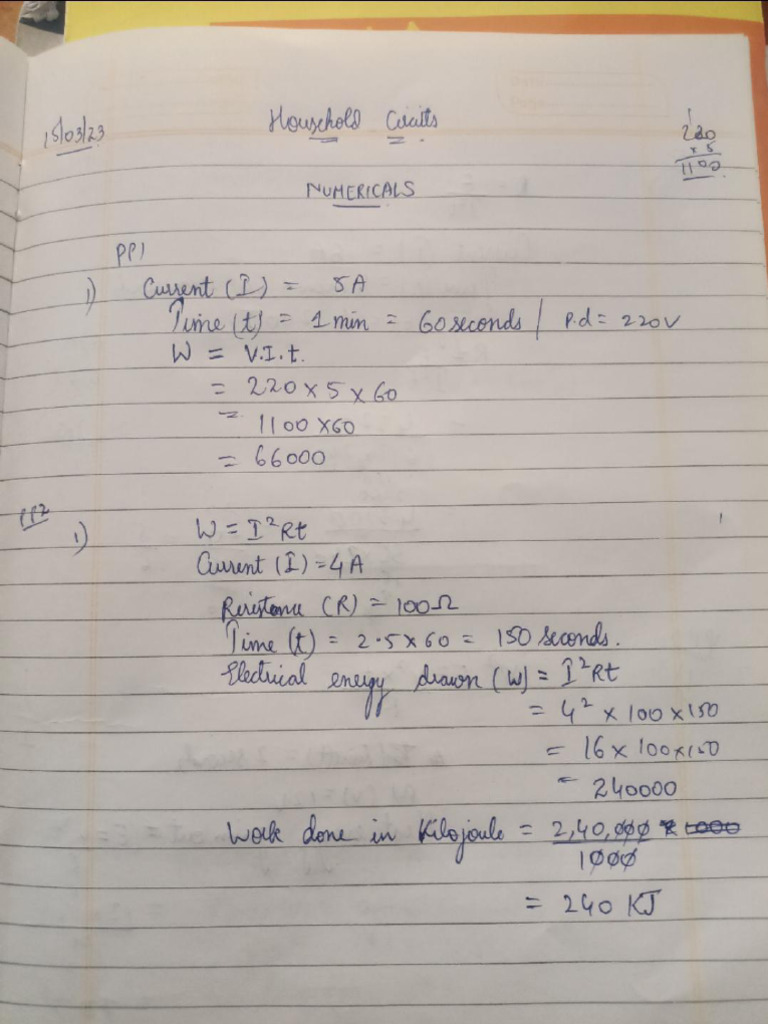 15/03/23
Household Circuits
220
x 5
1100
NUMERICALS
PP1
1) Current (I) = 5A
Time (t) = 1 min = 60 seconds / P.d = 220V
W = V.I.t.
= 220 x 5 x 60
= 1100 x60
= 66000
PP2
1) W = I²Rt
Current (I) = 4A
Resistance (R) = 100Ω
Time (t) = 2.5 x 60 = 150 seconds.
Electrical energy drawn (W) = I²Rt
= 4² x 100 x 150
= 16 x 100 x 150
= 240000
Work done in Kilojoule = 2,40,000 x 1000
1000
= 240 KJ